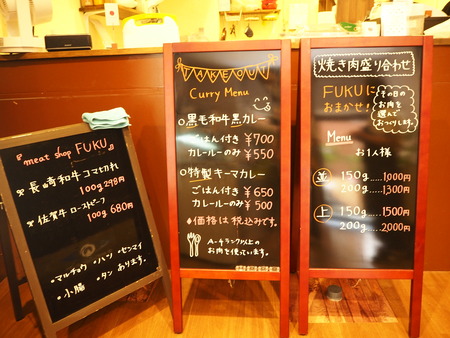 meat shop FUKU
長崎和牛コマ切れ
100g 298円
佐賀牛ローストビーフ
100g 680円
・マルチョウ ・ハツ ・センマイ
・小腸 ・タン あります。
TAKEOUT
Curry Menu
○黒毛和牛黒カレー
ごはん付き ¥700
カレールーのみ ¥550
○特製キーマカレー
ごはん付き ¥650
カレールーのみ ¥500
◆価格は税込みです。
A-4ランク以上の
お肉を使っています。
焼き肉盛り合わせ
FUKUに
おまかせ!
その日の
お肉を
選んで
おつくりします。
Menu
お1人様
並 150g......1,000円
200g......1,300円
上 150g......1500円
200g......2000円